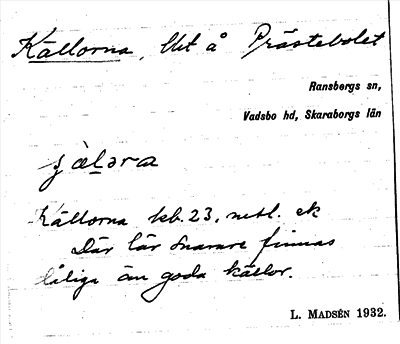 Källorna, Ut å Prästebolet
Ransbergs sn,
Vadsbo hd, Skaraborgs län
Källorna kb. 23, ek
Där lär snarare finnas
låliga än goda källor.
L. MADSÉN 1932.